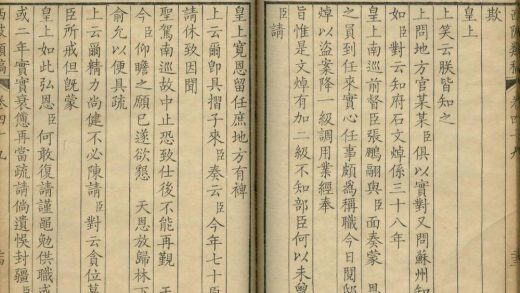 欺
皇上
上笑云朕皆知之
上問地方官某某臣俱以實對又問蘇州知
如臣對云知府石文焯係三十八年
皇上南巡前督臣張鵬翮與臣面奏蒙 恩
之員到任來實心任事頗為稱職今日閱邸
焯以盜案降一級調用業經奉
旨惟是文焯有加二級不知部臣何以未曾
臣請
皇上寬恩留任庶地方有裨
上云爾即具摺子來臣奏云臣今年七十臣
請休致因聞
聖駕南巡故中止恐致仕後不能再覲 天
今臣仰瞻之願已遂欲懇 天恩放歸林下
俞允以便具疏
上云爾精力尚健不必陳請臣對云貪位
臣所戒但既蒙
皇上如此弘恩臣何敢復請謹黽勉供職或
或二年實實衰憊再當疏請倘遺悞封疆臣
西陂類稿 卷四十九